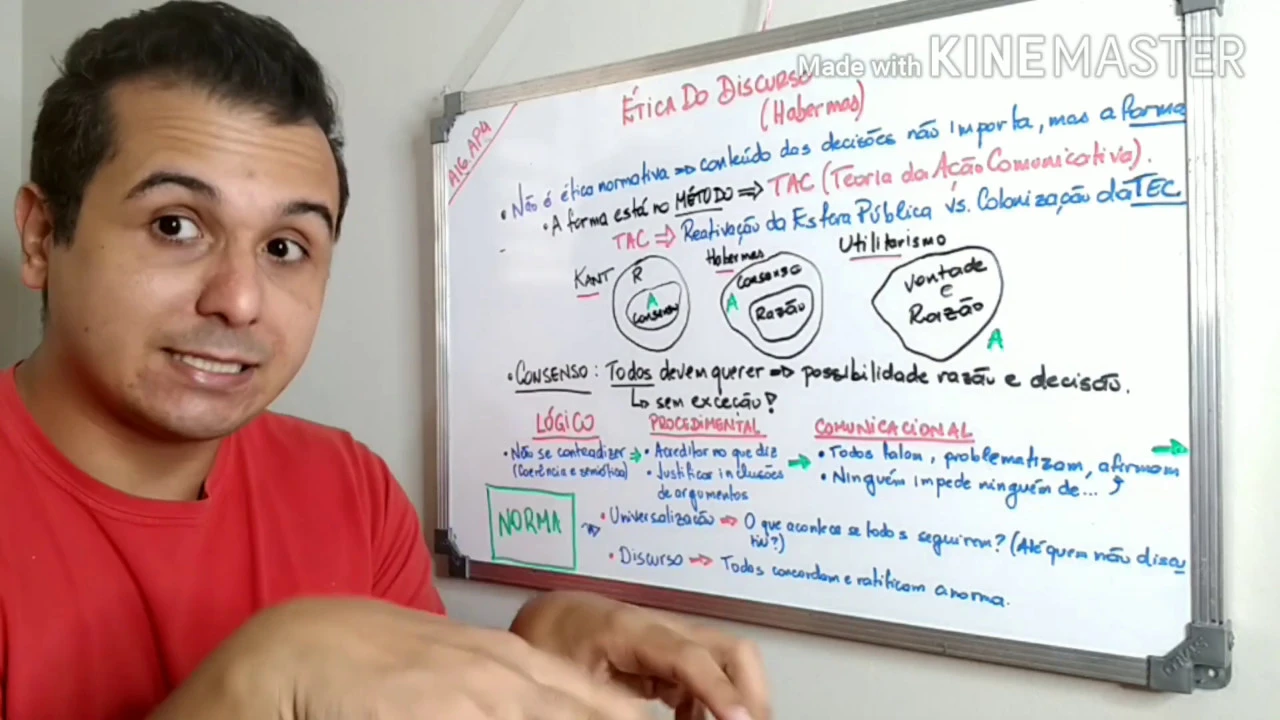 Made with KINEMASTER
A16.AP4
ÉTICA DO DISCURSO
(Habermas)
• Não é ética normativa => conteúdo das decisões não importa, mas a forma
• A forma está no MÉTODO => TAC (Teoria da Ação Comunicativa).
TAC => Reativação da Esfera Pública vs. Colonização da TEC
KANT
R
A
Consenso
Habermas
Consenso
A
Razão
Utilitarismo
Vontade
e
Razão
A
• CONSENSO: Todos devem querer => possibilidade razão e decisão.
↳ sem exceção!
LÓGICO
• Não se contradizer
(coerência e semiótica)
PROCEDIMENTAL
• Acreditar no que diz
• Justificar inclusões
de argumentos
COMUNICACIONAL
• Todos falam, problematizam, afirmam
• Ninguém impede ninguém de...
NORMA
• Universalização => O que acontece se todos seguirem? (Até quem não discu
tiu?)
• Discurso => Todos concordam e ratificam a norma.